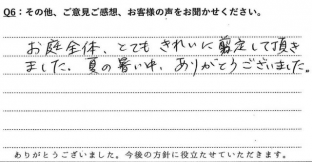 Q6:その他、ご意見ご感想、お客様の声をお聞かせください。
お庭全体、とてもきれいに剪定して頂き
ました。夏の暑い中、ありがとうございました。
ありがとうございました。今後の方針に役立たせていただきます。